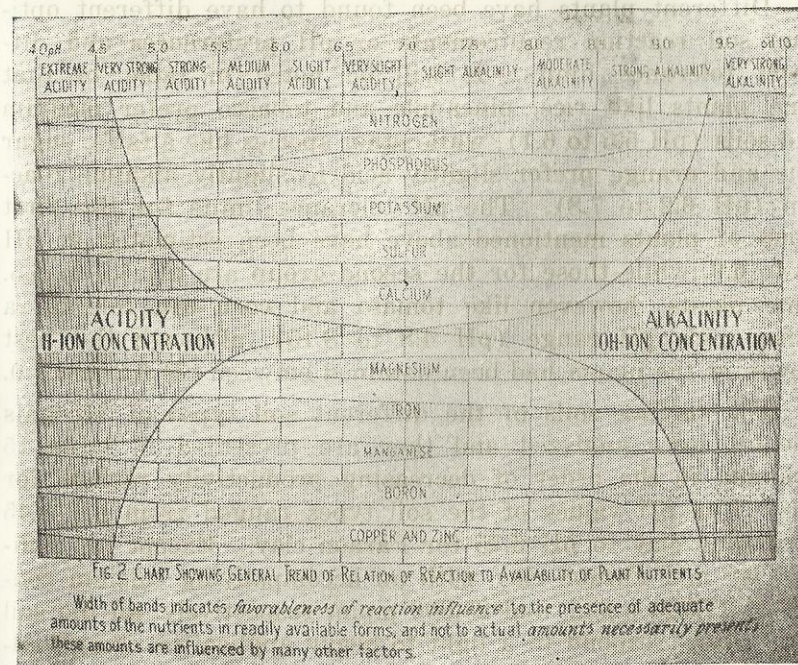 4.0 pH 4.5 5.0 5.5 6.0 6.5 7.0 7.5 8.0 8.5 9.0 9.5 pH 10.
EXTREME ACIDITY VERY STRONG ACIDITY STRONG ACIDITY MEDIUM ACIDITY SLIGHT ACIDITY VERY SLIGHT ACIDITY SLIGHT ALKALINITY MODERATE ALKALINITY STRONG ALKALINITY VERY STRONG ALKALINITY
NITROGEN
PHOSPHORUS
POTASSIUM
SULFUR
CALCIUM
ACIDITY
H-ION CONCENTRATION
ALKALINITY
OH-ION CONCENTRATION
MAGNESIUM
IRON
MANGANESE
BORON
COPPER AND ZINC
FIG. 2 CHART SHOWING GENERAL TREND OF RELATION OF REACTION TO AVAILABILITY OF PLANT NUTRIENTS
Width of bands indicates favorableness of reaction influence to the presence of adequate
amounts of the nutrients in readily available forms, and not to actual amounts necessarily present;
these amounts are influenced by many other factors.